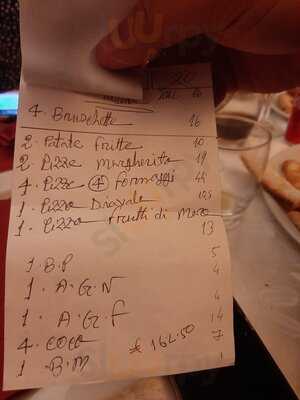 20
4 Bruschette 16
2 Patate fritte 10
2 Pizze margherita 19
4 Pizze 4 formaggi 44
1 Pizza Diavola
1 Pizza frutti di mare 13
1 B.P 5
1 A.G.N 4
1 A.G.F 4
4 COCA 14
1 B.M 7
€ 162.50